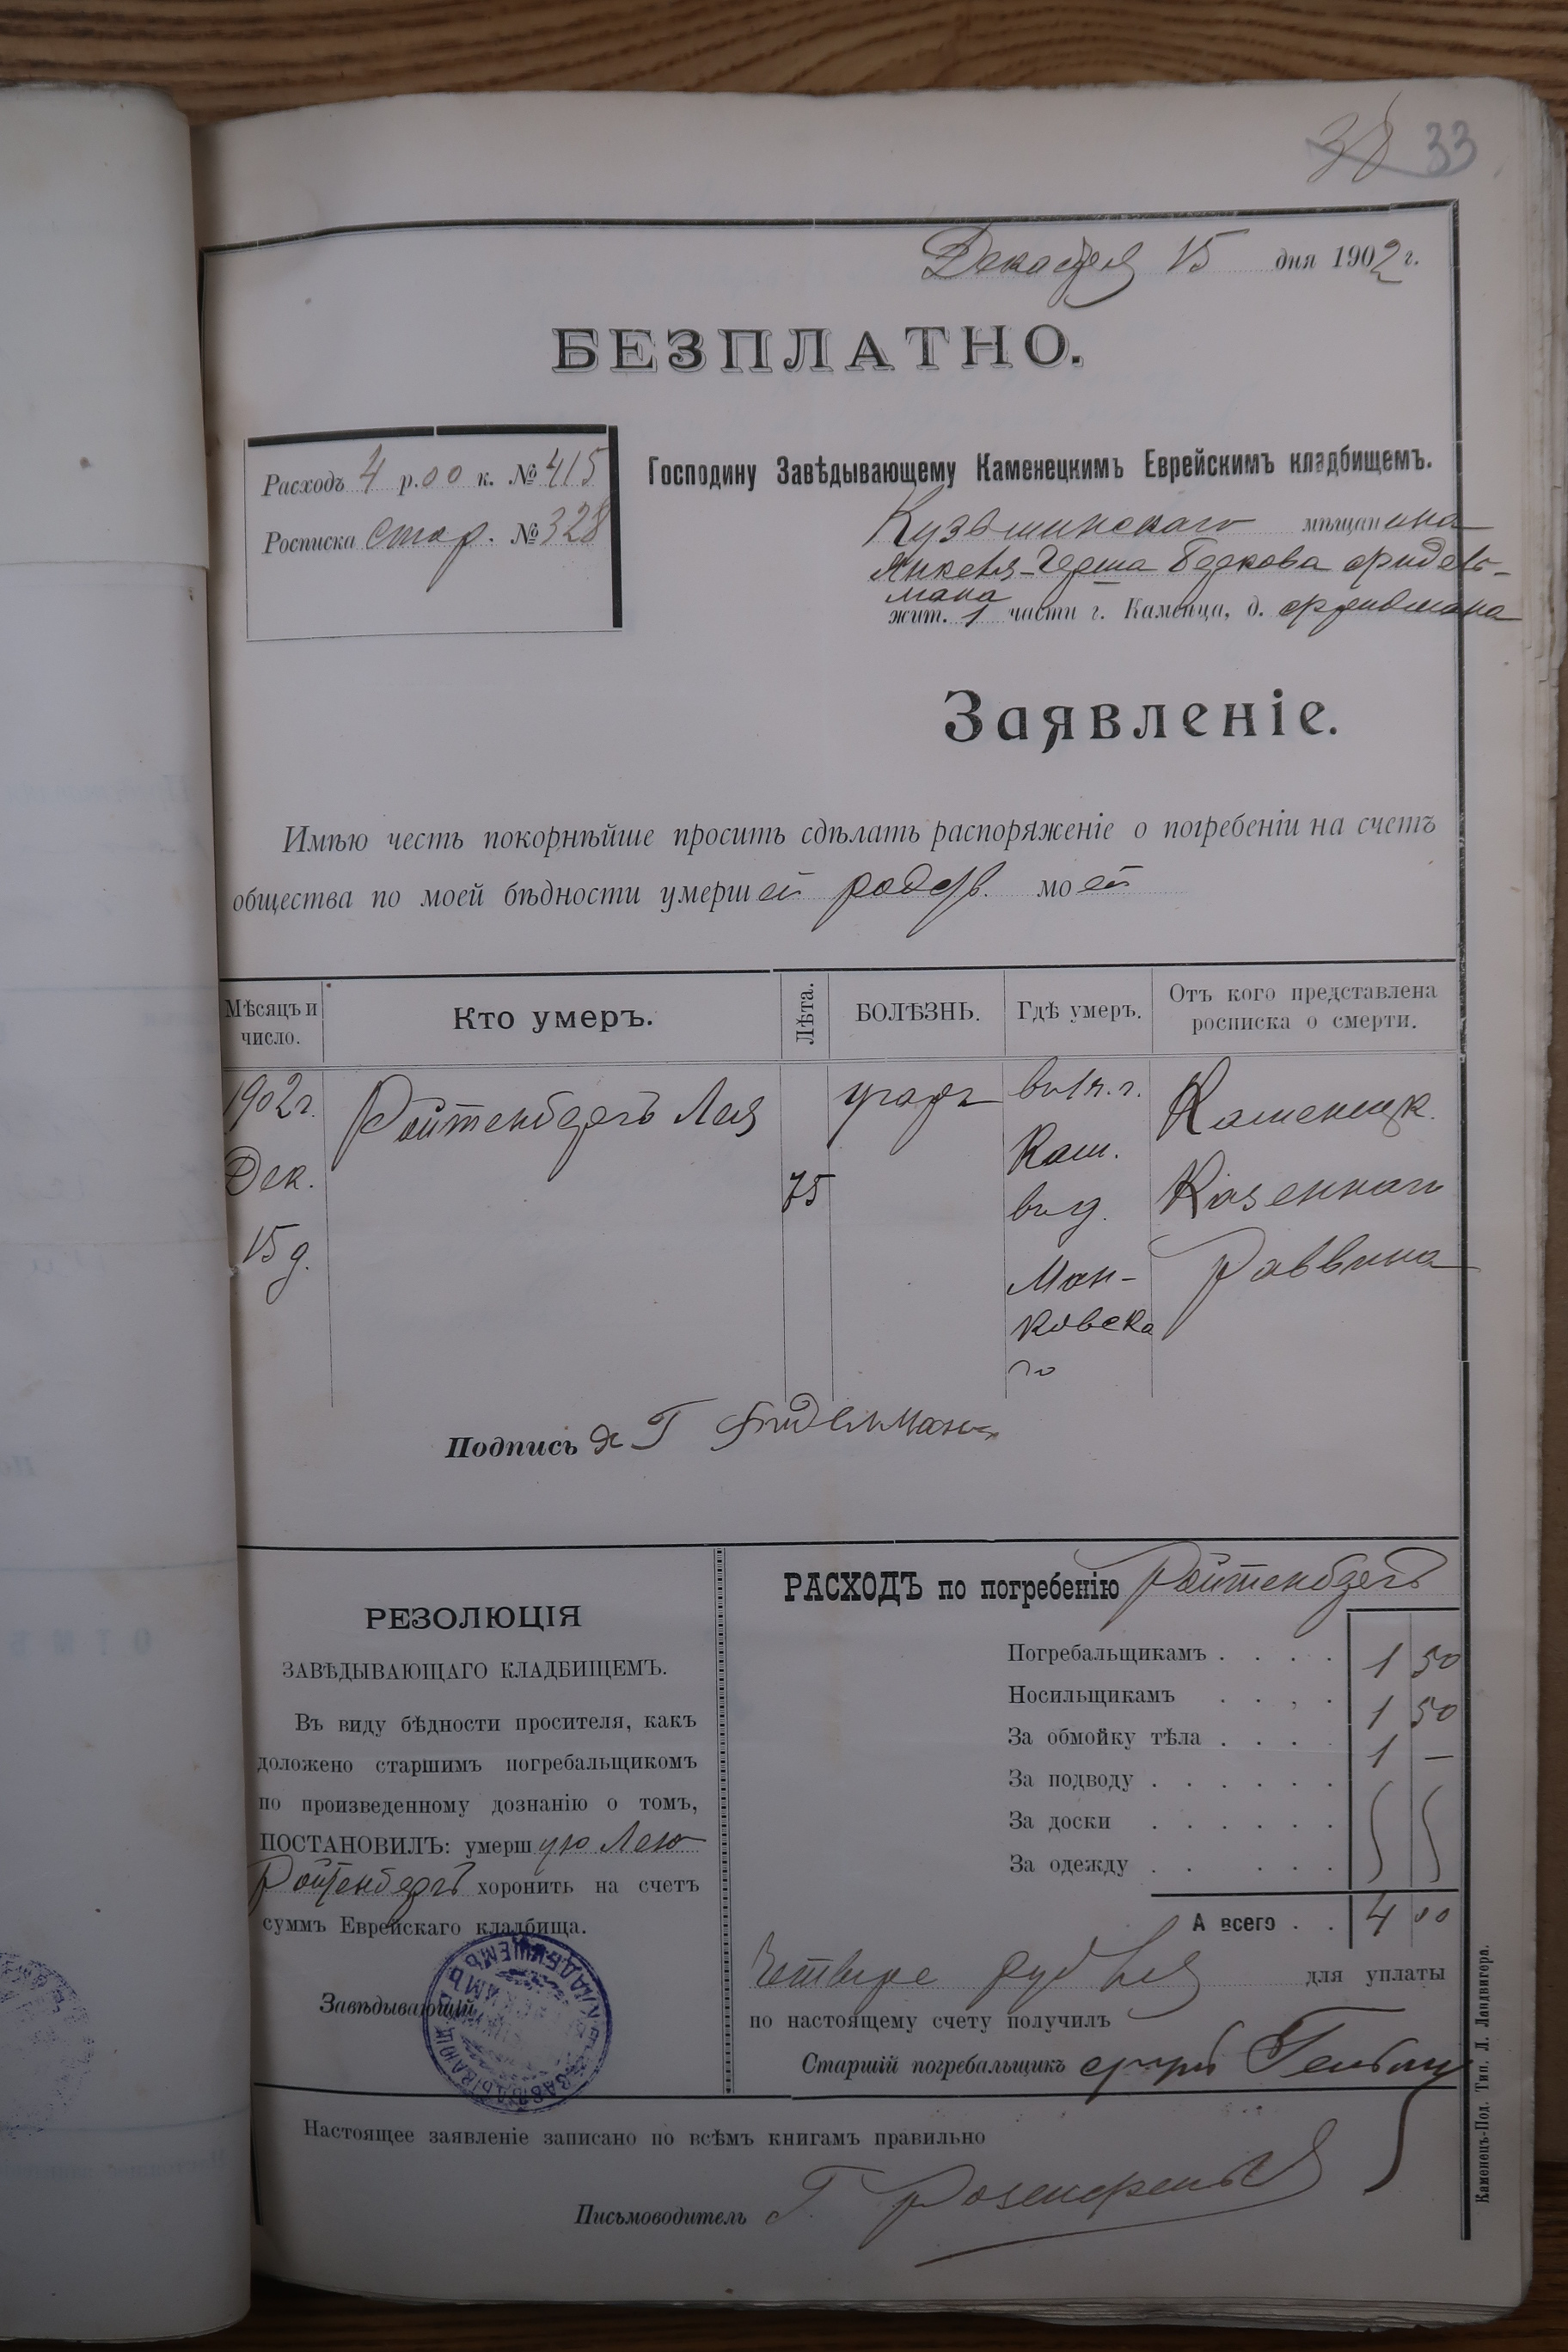 33
Декабря 15 дня 1902 г.
БЕЗПЛАТНО.
Расходъ 4 р. 00 к. № 415
Росписка стар. № 328
Господину Завѣдывающему Каменецкимъ Еврейскимъ кладбищемъ.
Кузьминскаго мѣщанина
Янкеля-Герша Беркова Фидель-
мана
жит. 1 части г. Каменца, д.
Заявленіе.
Имѣю честь покорнѣйше просить сдѣлать распоряженіе о погребеніи на счетъ
общества по моей бѣдности умершей родств. моей
Мѣсяцъ и число.
Кто умеръ.
Лѣта.
БОЛѢЗНЬ.
Гдѣ умеръ.
Отъ кого представлена росписка о смерти.
1902 г.
Дек.
15 д.
Ройтенбергъ Лея
75
въ 1 ч. г.
Кам.
въ д.
Ман-
ковска
го
Каменецк.
Казеннаго
Раввина
Подпись Я Г Фидельманъ
РЕЗОЛЮЦІЯ
ЗАВѢДЫВАЮЩАГО КЛАДБИЩЕМЪ.
Въ виду бѣдности просителя, какъ
доложено старшимъ погребальщикомъ
по произведенному дознанію о томъ,
ПОСТАНОВИЛЪ: умершую Лею
Ройтенбергъ хоронить на счетъ
суммъ Еврейскаго кладбища.
Завѣдывающій
РАСХОДЪ по погребенію Ройтенбергъ
Погребальщикамъ . . . . 1 50
Носильщикамъ . . . . 1 50
За обмойку тѣла . . . . 1 —
За подводу . . . . . .
За доски . . . . . .
За одежду . . . . .
А всего . . 4 00
Четыре рубля для уплаты
по настоящему счету получилъ
Старшій погребальщикъ
Настоящее заявленіе записано по всѣмъ книгамъ правильно
Письмоводитель Г. Розенфельд
Каменецъ-Под. Тип. Л. Ландвигера.